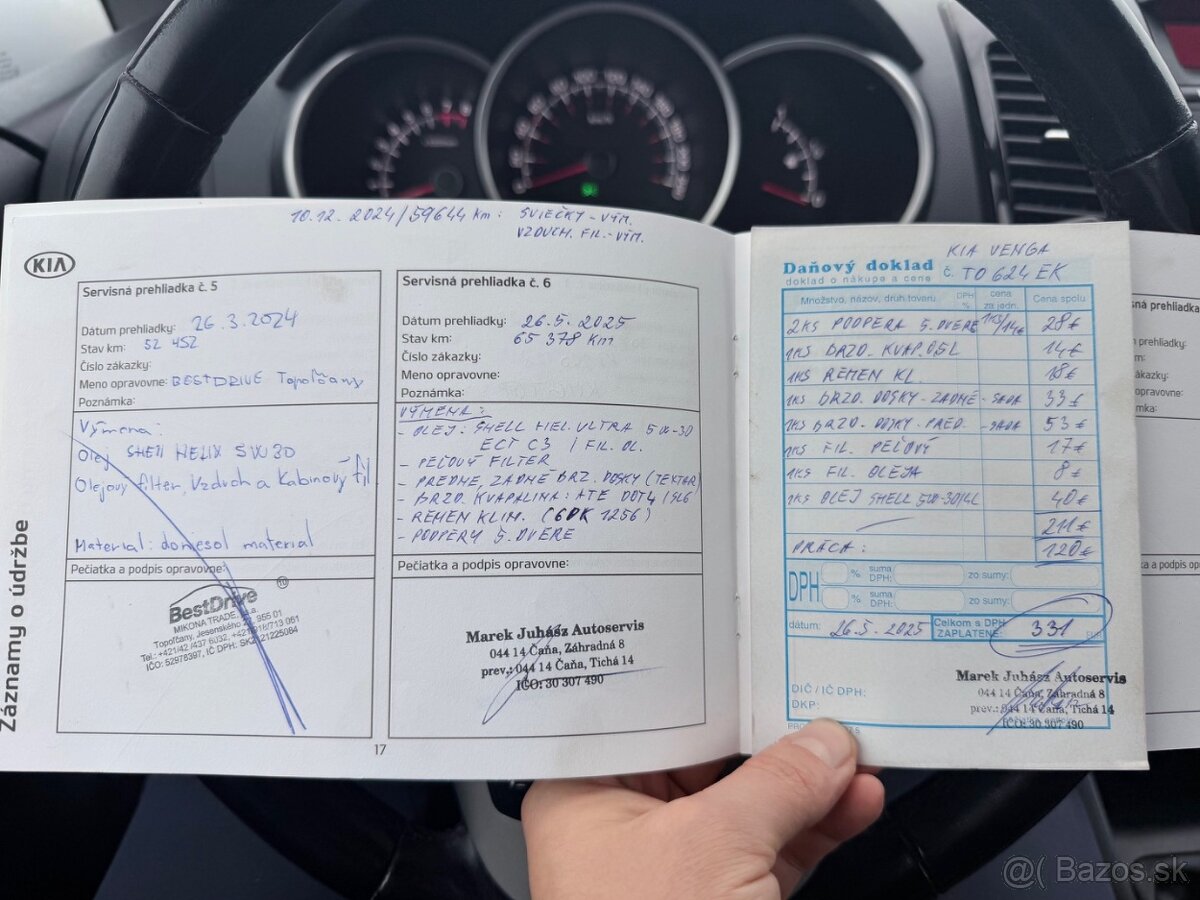 10.12.2024/59644 km: SVIEČKY-VÝM.
VZDUCH. FIL.-VÝM.
KIA
Servisná prehliadka č. 5
Dátum prehliadky: 26.3.2024
Stav km: 52 452
Číslo zákazky:
Meno opravovne: BESTDRIVE Topoľčany
Poznámka:
Výmena:
Olej SHELL HELIX 5W30
Olejový filter, Vzduch a Kabínový fil
Materiál: donesol materiál
Pečiatka a podpis opravovne:
BestDrive
MIKONA TRADE,
Topoľčany, Jesenského 955 01
IČO: 52978397, IČ DPH: SK2121225084
Záznamy o údržbe
17
Servisná prehliadka č. 6
Dátum prehliadky: 26.5.2025
Stav km: 65 378 km
Číslo zákazky:
Meno opravovne:
Poznámka:
VÝMENA:
- OLEJ: SHELL HEL. ULTRA 5W-30
ECT C3 / FIL. OL.
- PEĽOVÝ FILTER
- PREDNÉ, ZADNÉ BRZ. DOSKY (TEXTAR)
- BRZD. KVAPALINA: ATE DOT4 /SL6
- REMEN KLIM. (6PK 1256)
- PODPERY 5. DVERE
Pečiatka a podpis opravovne:
Marek Juhász Autoservis
044 14 Čaňa, Záhradná 8
prev.: 044 14 Čaňa, Tichá 14
IČO: 30 307 490
KIA VENGA
Daňový doklad
doklad o nákupe a cene č. TO 624 EK
Množstvo, názov, druh tovaru DPH % cena za jedn. Cena spolu
2KS PODPERA 5. DVERE 1KS/14€ 28€
1KS BRZD. KVAP. 0,5L 14€
1KS REMEN KL. 18€
1KS BRZD. DOSKY-ZADNÉ - SADA 33€
1KS BRZD. DOSKY-PRED. - SADA 53€
1KS FIL. PEĽOVÝ 17€
1KS FIL. OLEJA 8€
1KS OLEJ SHELL 5W-30/4L 40€
211€
PRÁCA: 120€
DPH % suma DPH: zo sumy:
% suma DPH: zo sumy:
dátum: 26.5.2025 Celkom s DPH ZAPLATENÉ: 331
DIČ / IČ DPH:
DKP:
Marek Juhász Autoservis
044 14 Čaňa, Záhradná 8
prev.: 044 14 Čaňa, Tichá 14
IČO: 30 307 490
@( Bazos.sk